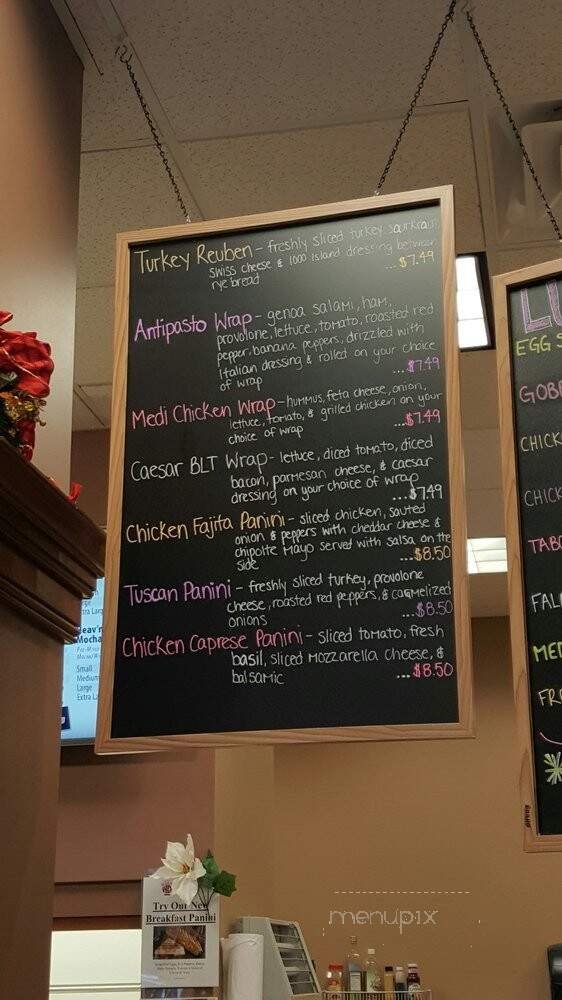 Turkey Reuben - freshly sliced turkey, saurkraut
swiss cheese & 1000 island dressing between
rye bread ...$7.49
Antipasto Wrap - genoa salami, ham,
provolone, lettuce, tomato, roasted red
pepper, banana peppers, drizzled with
Italian dressing & rolled on your choice
of wrap ...$7.49
Medi Chicken Wrap - hummus, feta cheese, onion,
lettuce, tomato, & grilled chicken on your
choice of wrap ...$7.49
Caesar BLT Wrap - lettuce, diced tomato, diced
bacon, parmesan cheese, & caesar
dressing on your choice of wrap
...$7.49
Chicken Fajita Panini - sliced chicken, sauted
onion & peppers with cheddar cheese &
chipolte mayo served with salsa on the
side ...$8.50
Tuscan Panini - freshly sliced turkey, provolone
cheese, roasted red peppers, & carmelized
onions ...$8.50
Chicken Caprese Panini - sliced tomato, fresh
basil, sliced mozzarella cheese, &
balsamic ...$8.50
EGG S
GOB
CHICK
CHICK
TAB
FAL
MED
FR
Mocha
Small
Medium
Large
Extra La
Try Our New
Breakfast Panini
menupix